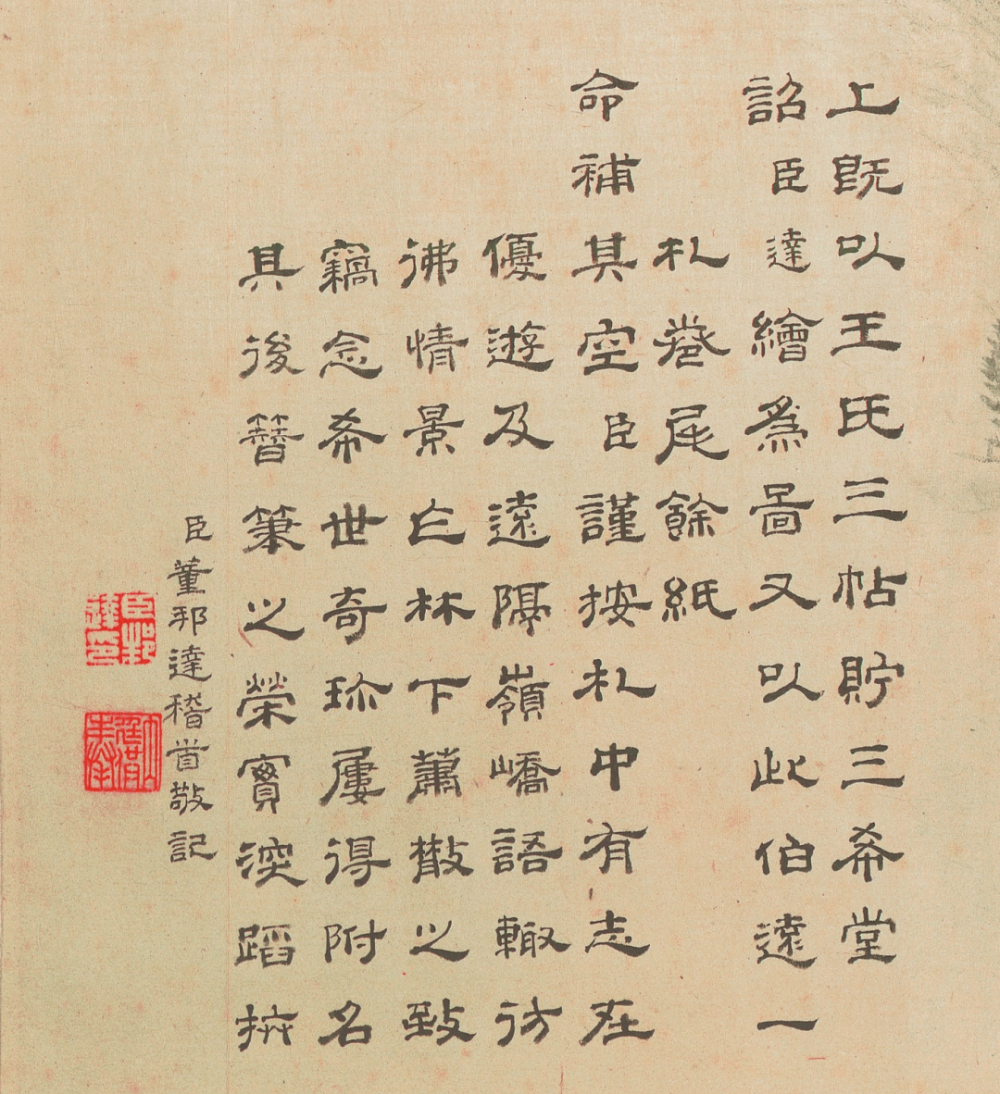 上既以王氏三帖貯三希堂
詔臣達繪爲圖又以此伯遠一
札卷尾餘紙
命補其空臣謹按札中有志在
優遊及遠隔嶺嶠語輙彷
彿情景林下蕭散之致
竊念希世奇珎屢得附名
其後簪筆之榮實深蹈抃
臣董邦達稽首敬記
臣邦達印